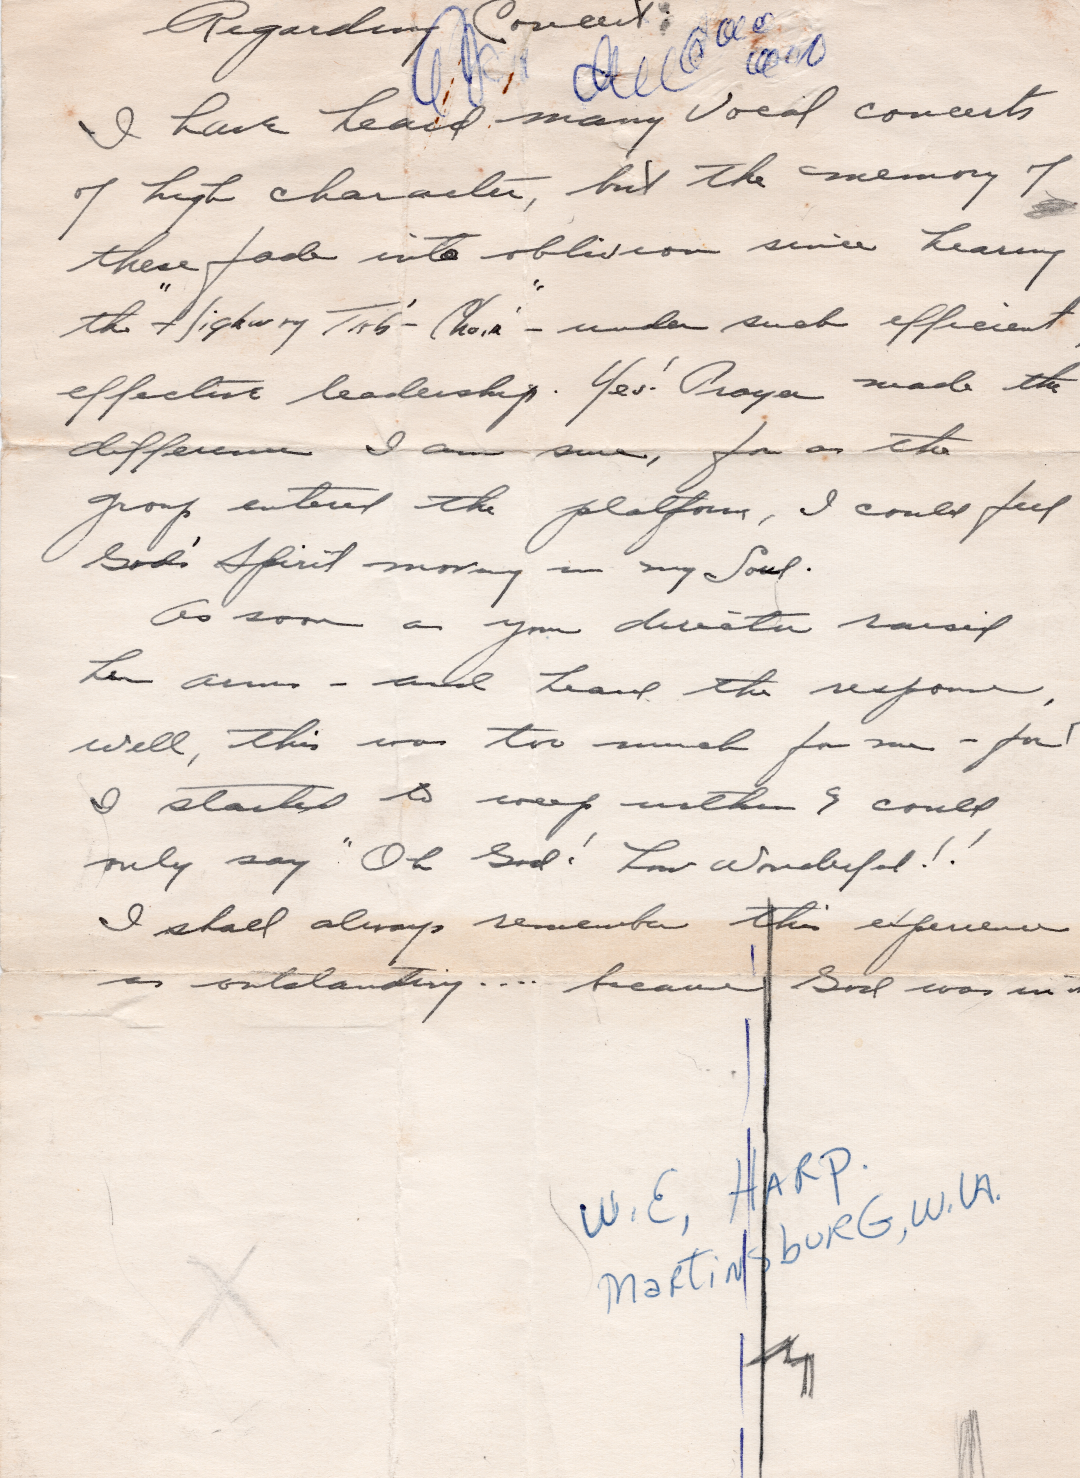 Regarding Concert:
I have heard many vocal concerts
of high character, but the memory of
these fade into oblivion since hearing
the "Highway Tab'- Choir" - under such efficient,
effective leadership. Yes! Prayer made the
difference I am sure, for as the
group entered the platform, I could feel
God's Spirit moving in my Soul.
As soon as your director raised
her arms - and heard the response,
well, this was too much for me - for
I started to weep within & could
only say "Oh God! how wonderful!!
I shall always remember this experience
as outstanding.... because God was in it
W.E, HARP.
MartinsbURG, W.VA.